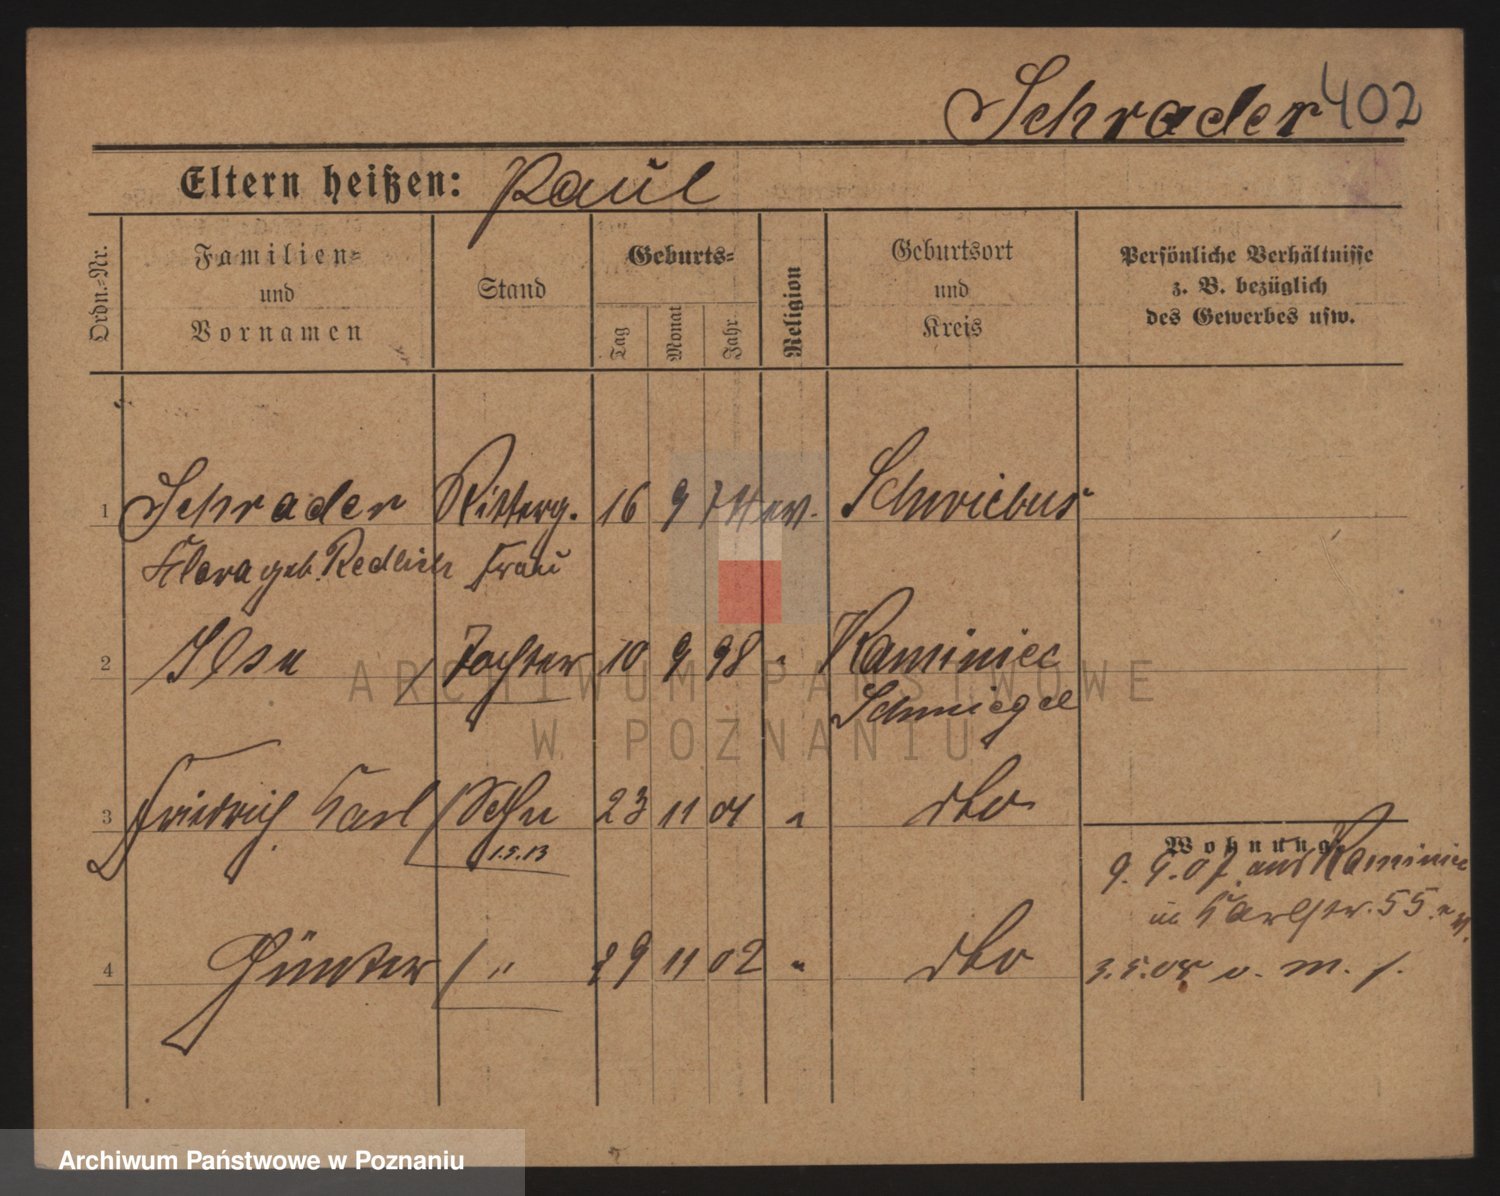 Schrader 402
Eltern heißen: Paul
Ordn.-Nr.
Familien= und Vornamen
Stand
Geburts=
Tag
Monat
Jahr
Religion
Geburtsort und Kreis
Persönliche Verhältnisse
z. B. bezüglich
des Gewerbes usw.
1 Schrader Ritterg. 16 9 74 ev. Schwiebus
Flora geb. Redlich Frau
2 Ilse Tochter 10 9 98 " Kaminiec
Schmiegel
3 Friedrich Karl Sohn 23 11 01 " dto
1.5.13
Wohnung.
9. 9. 07. aus Kaminiec
in Karlstr. 55
4 Günter " 29 11 02 " dto
3.5.08 v. m. f.
ARCHIWUM PAŃSTWOWE
W POZNANIU
Archiwum Państwowe w Poznaniu